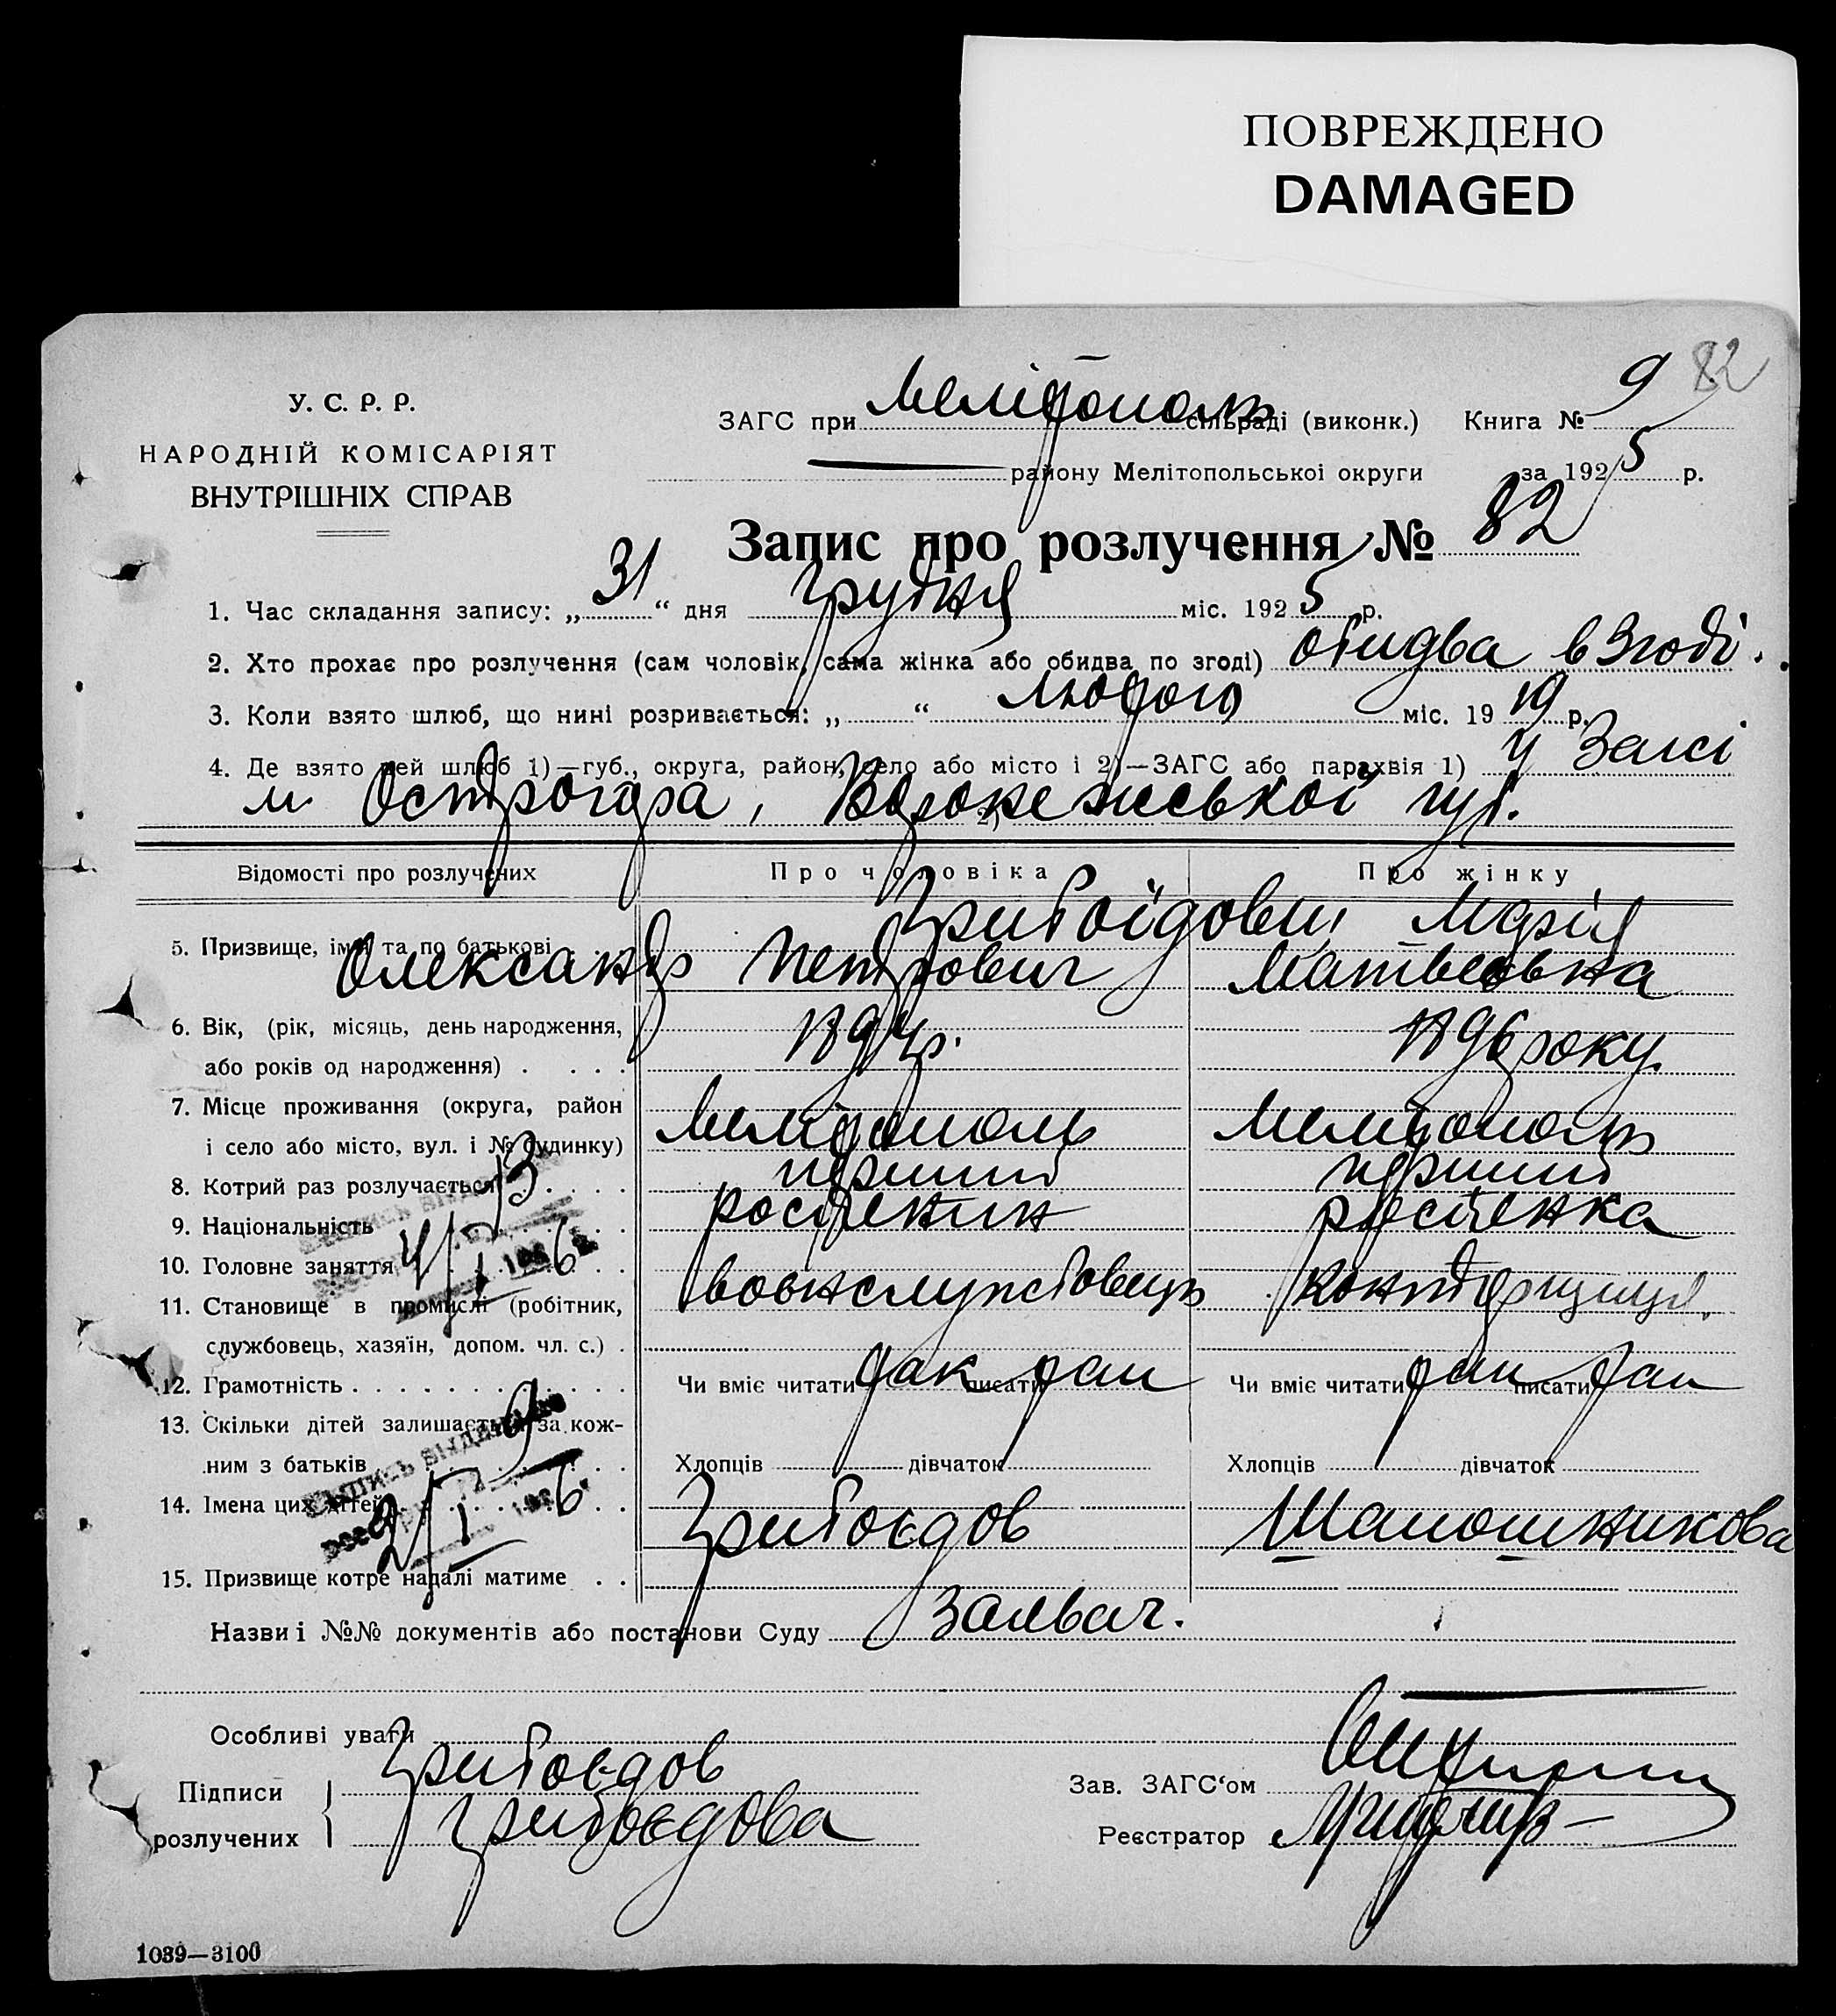 ПОВРЕЖДЕНО
DAMAGED
82
У. С. Р. Р.
НАРОДНІЙ КОМІСАРІЯТ
ВНУТРІШНІХ СПРАВ
ЗАГС при Мелітополь сільраді (виконк.) Книга № 9
району Мелітопольської округи за 1925 р.
Запис про розлучення № 82
1. Час складання запису: „31“ дня грудня міс. 1925 р.
2. Хто прохає про розлучення (сам чоловік, сама жінка або обидва по згоді) обидва в згоді.
3. Коли взято шлюб, що нині розривається: „ “ лютого міс. 1919 р.
4. Де взято цей шлюб 1)—губ., округа, район, село або місто і 2)—ЗАГС або парахвія 1) у Загсі
м Острогора, Воронежської губ.
2)
Відомості про розлучених Про чоловіка Про жінку
5. Призвище, імя та по батькові Грибоїдови Марія
Олександр Петрович Матвеєвна
6. Вік, (рік, місяць, день народження,
або років од народження) . . . . 1894р. 1896 року.
7. Місце проживання (округа, район
і село або місто, вул. і № будинку) Мелітополь Мелітополь
8. Котрий раз розлучається . . . . перший перший
9. Національність . . . . росіянин росіянка
10. Головне заняття . . . .
11. Становище в промислі (робітник, воєнслужбовець конторщиця.
службовець, хазяїн, допом. чл. с.) .
12. Грамотність . . . . . . . . . . . . Чи вміє читати так писати так Чи вміє читати так писати так
13. Скільки дітей залишається за кож-
ним з батьків . . . . Хлопців дівчаток Хлопців дівчаток
14. Імена цих дітей . . . . Грибоєдов Шапошникова
15. Призвище котре надалі матиме . .
Назви і №№ документів або постанови Суду Заявач.
Особливі уваги
Підписи Грибоєдов Зав. ЗАГС‘ом
розлучених Грибоєдова Реєстратор
1039—3100